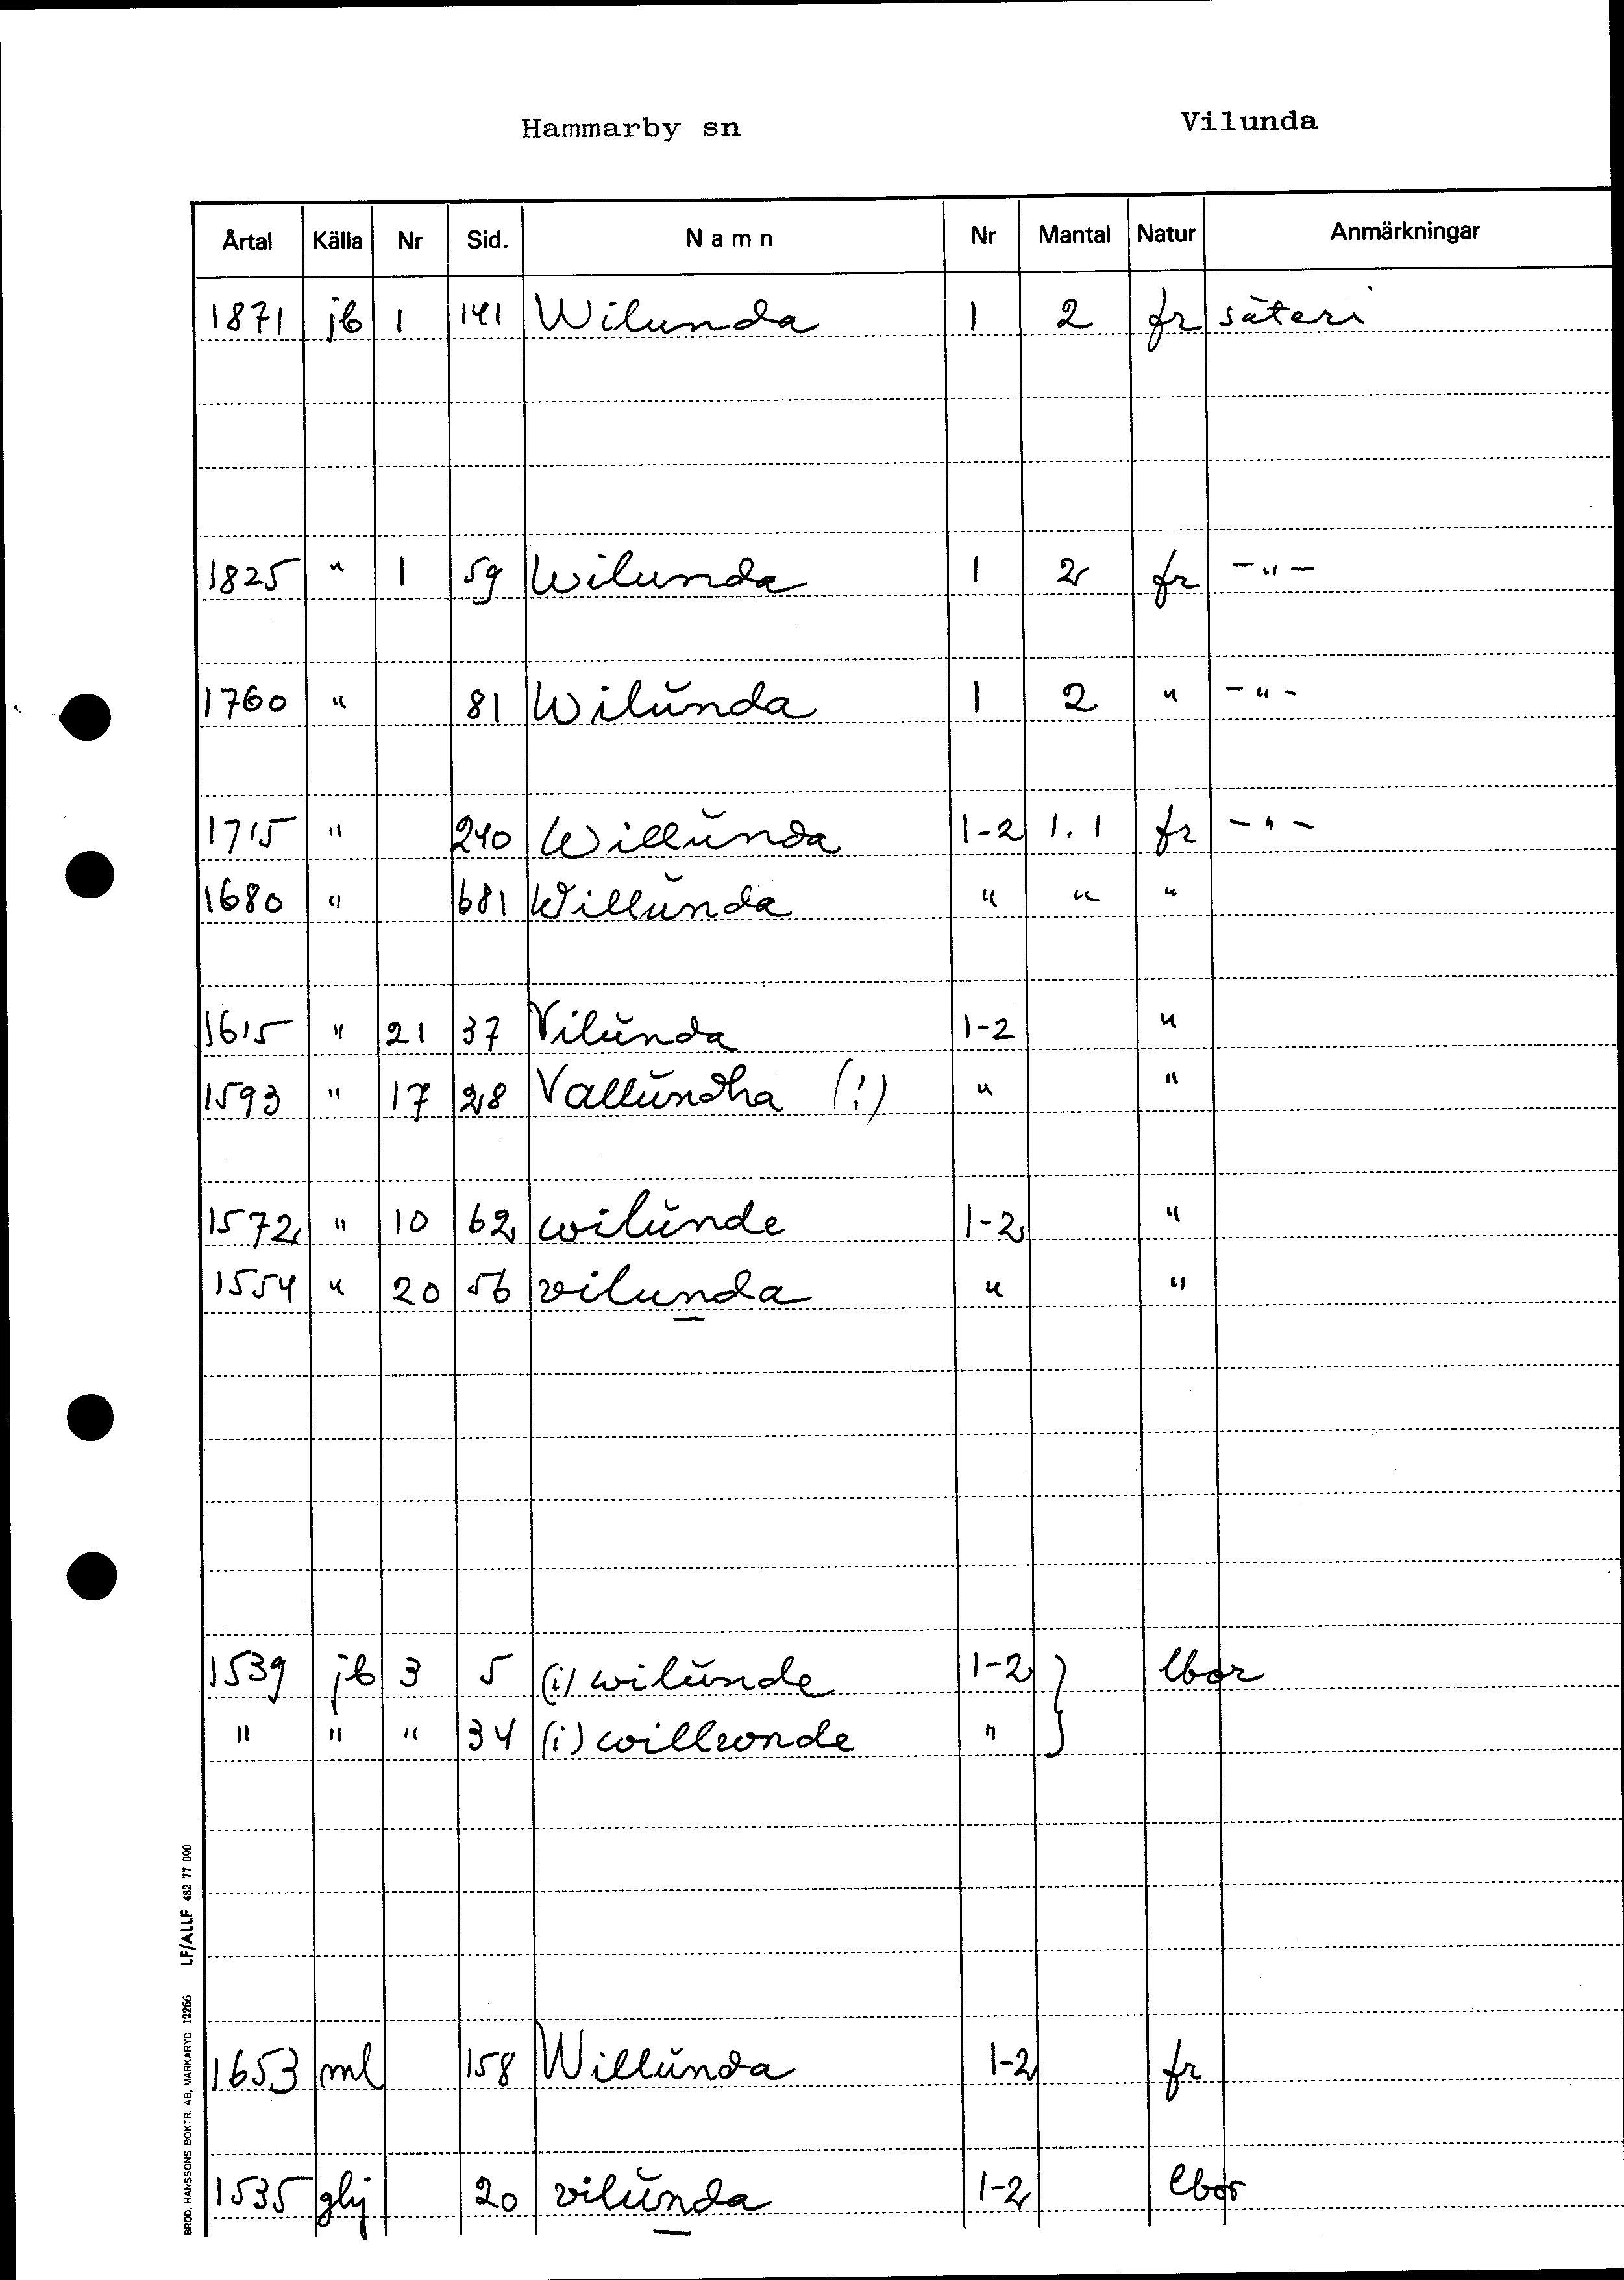 Hammarby sn Vilunda
Årtal Källa Nr Sid. Namn Nr Mantal Natur Anmärkningar
1871 jb 1 141 Wilunda 1 2 fr säteri
1825 " 1 59 Wilunda 1 2 fr -"-
1760 " 81 Wilŭnda 1 2 " -"-
1715 " 240 Willŭnda 1-2 1.1 fr -"-
1680 " 681 Willŭnda " " "
1615 " 21 37 Vilŭnda 1-2 "
1593 " 17 28 Vallŭndha (!) " "
1572 " 10 62 wilŭnde 1-2 "
1554 " 20 56 vilunda " "
1539 jb 3 5 (i) wilŭnde 1-2 } lbor
" " " 34 (i) willwnde "
1653 ml 158 Willŭnda 1-2 fr
1535 glj 20 vilŭnda 1-2 lbor
BRÖD. HANSSONS BOKTR. AB, MARKARYD 12266 LF/ALLF 482 77 090